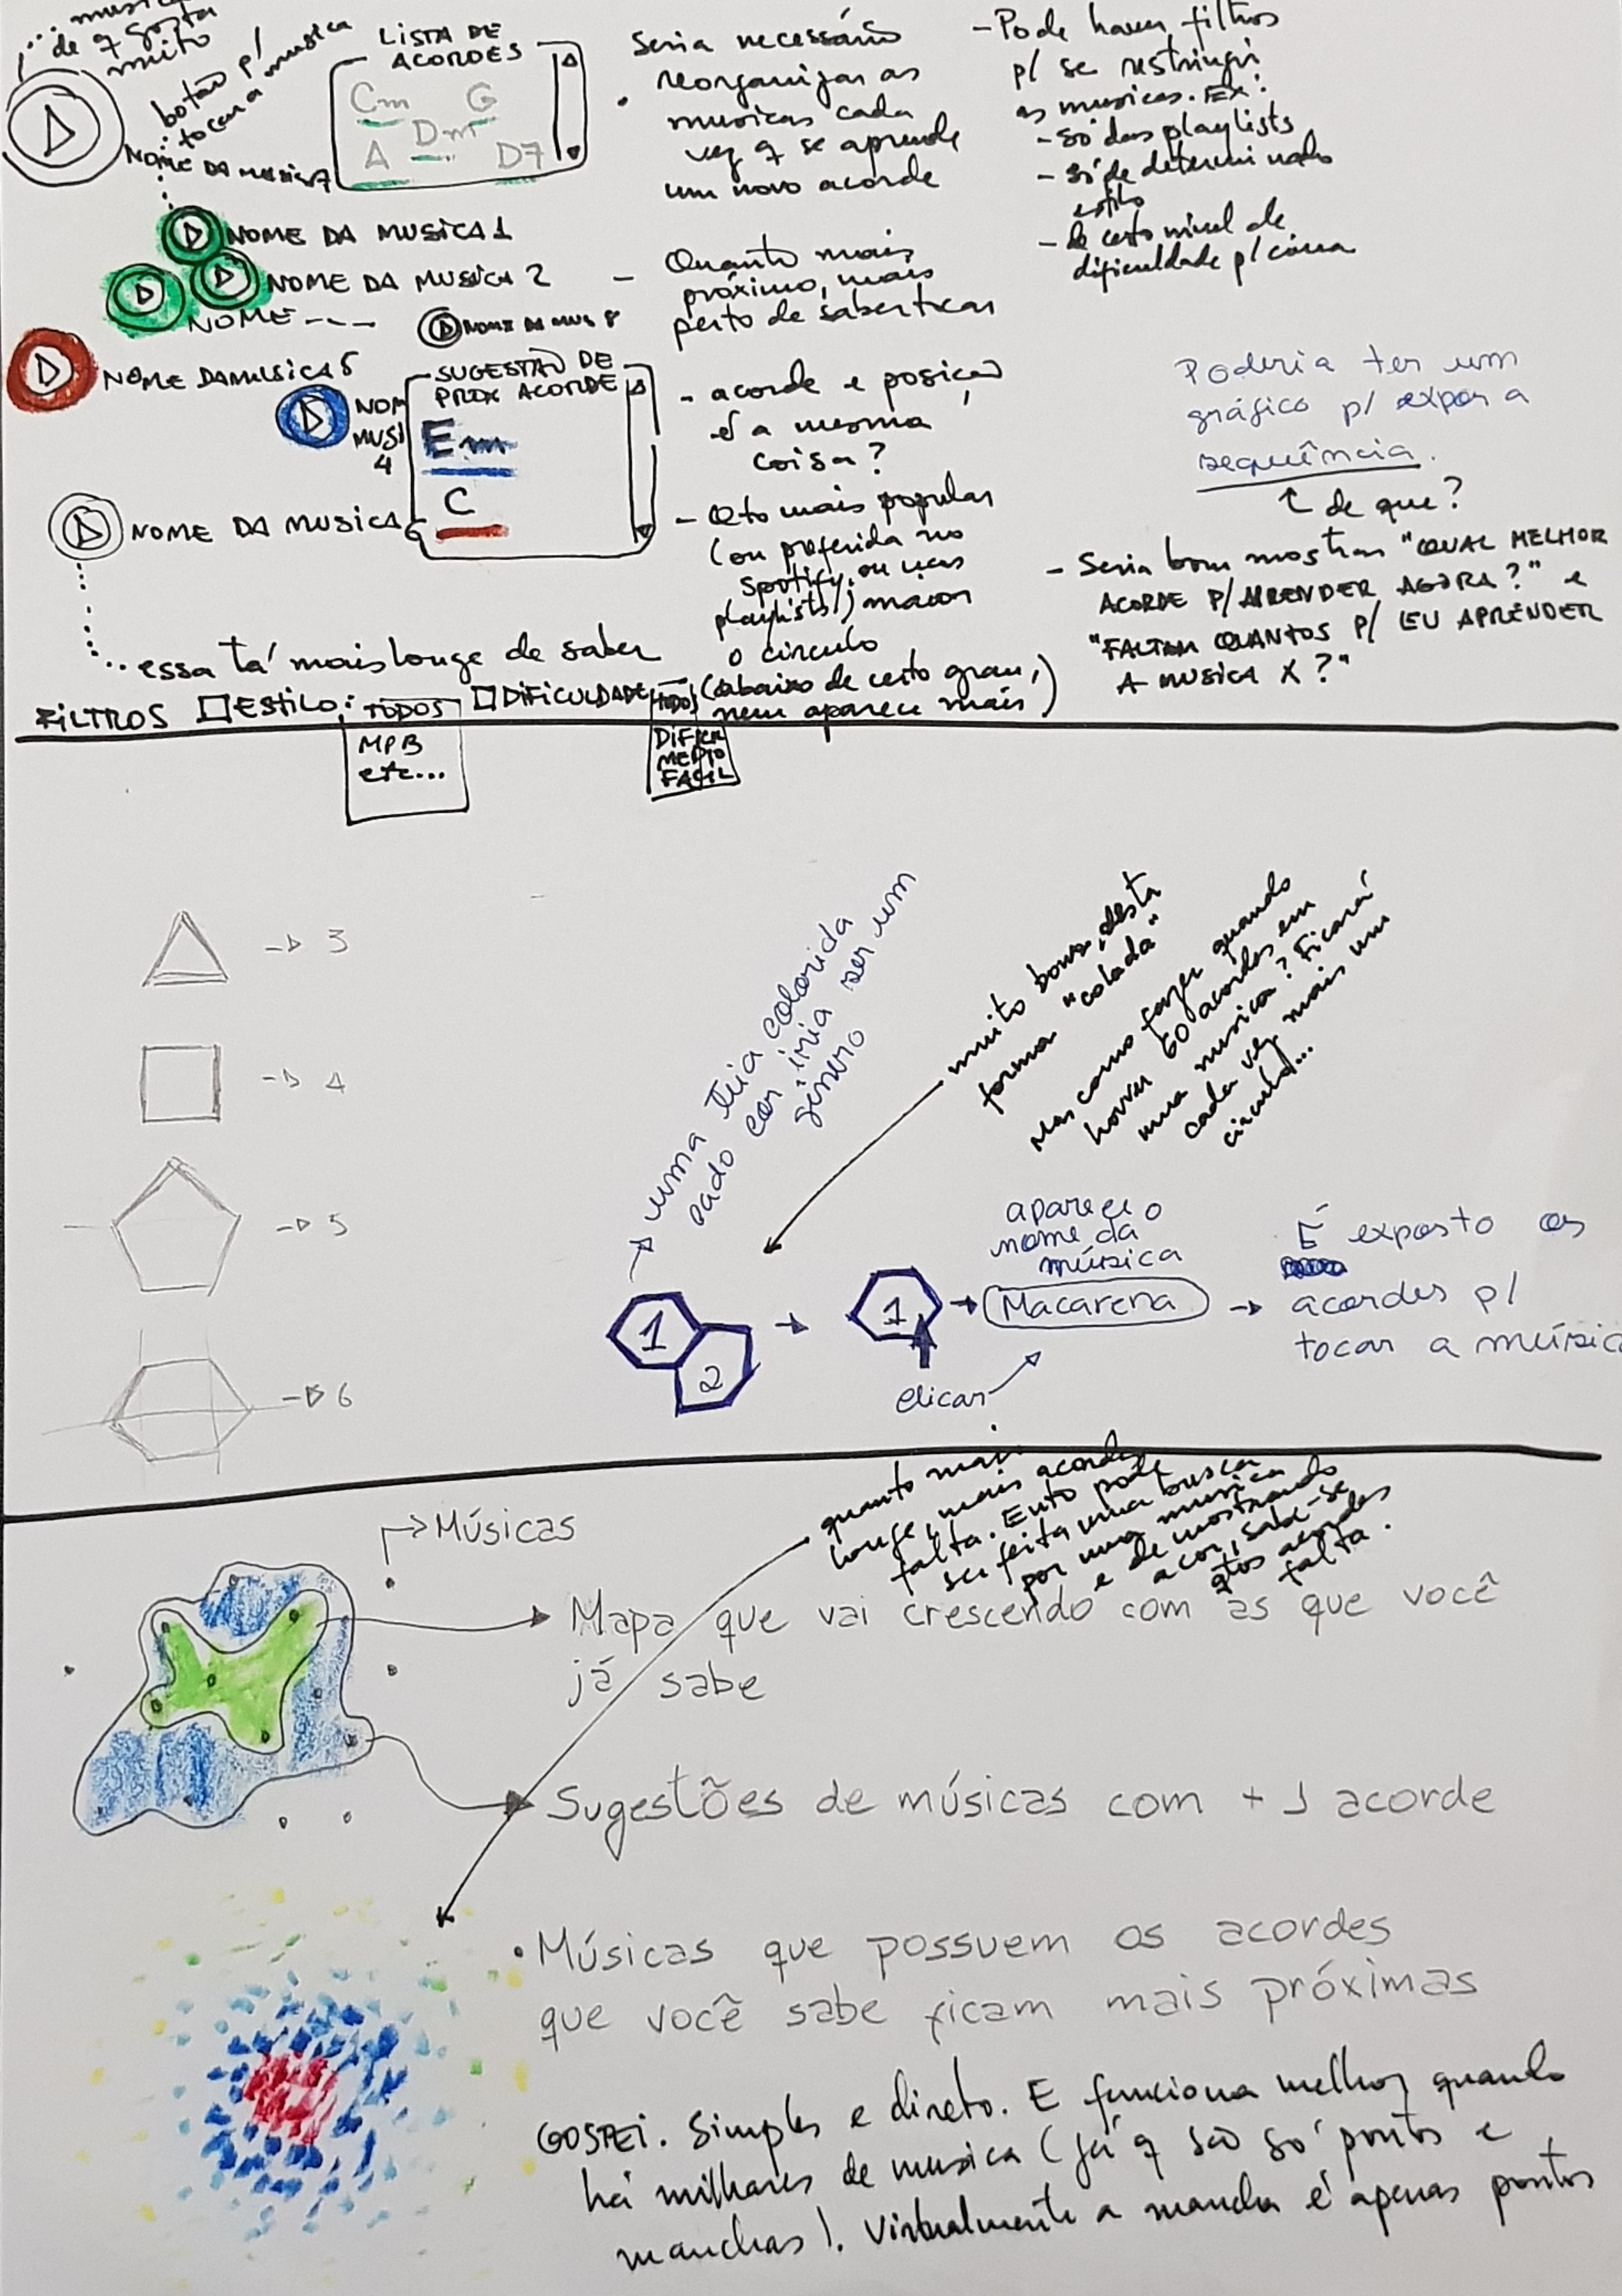 ... musica
de q gosta
muito
botão p/
tocar a musica
NOME DA MUSICA 7
LISTA DE
ACORDES
Cm G
Dm
A D7
NOME DA MUSICA 1
NOME DA MUSICA 2
NOME ----
NOME DA MUS 8
NOME DA MUSICA 5
NOM
MUSI
4
SUGESTÃO DE
PROX ACORDE
Em
C
NOME DA MUSICA 6
... essa tá mais longe de saber
FILTROS ESTILO: TODOS DIFICULDADE TODOS
MPB
etc...
DIFICIL
MEDIO
FACIL
Seria necessário
reorganizar as
musicas cada
vez q se aprende
um novo acorde
- Quanto mais
próximo, mais
perto de saber tocar
- acorde e posição
é a mesma
coisa?
- Qto mais popular
(ou preferida no
spotify, ou nas
playlists) maior
o circulo
(abaixo de certo grau,
nem aparece mais)
- Pode haver filtros
p/ se restringir
as musicas. Ex:
- só das playlists
- só de determinado
estilo
- de certo nivel de
dificuldade p/ cima
Poderia ter um
gráfico p/ expor a
sequência.
↑ de que?
- Seria bom mostrar "QUAL MELHOR
ACORDE P/ APRENDER AGORA?" e
"FALTAM QUANTOS P/ EU APRENDER
A MUSICA X?"
→ 3
→ 4
→ 5
→ 6
uma teia colorida
cada cor iria ser um
gênero
muito bom, desta
forma "colada"
Mas como fazer quando
houver 60 acordes em
uma musica? Ficará
cada vez mais um
circulo...
1
2
→ 1 →
aparece o
nome da
música
Macarena
clicar
→ É exposto os
acordes p/
tocar a música
→ Músicas
quanto mais
longe, mais acordes
falta. Então pode
ser feita uma busca
por uma musica
e demostrando
a cor, sabe-se
qtos acordes
falta.
Mapa que vai crescendo com as que você
já sabe
Sugestões de músicas com + 1 acorde
• Músicas que possuem os acordes
que você sabe ficam mais próximas
GOSTEI. Simples e direto. E funciona melhor quando
há milhares de musica (já q são só pontos e
manchas). Virtualmente a mancha é apenas pontos